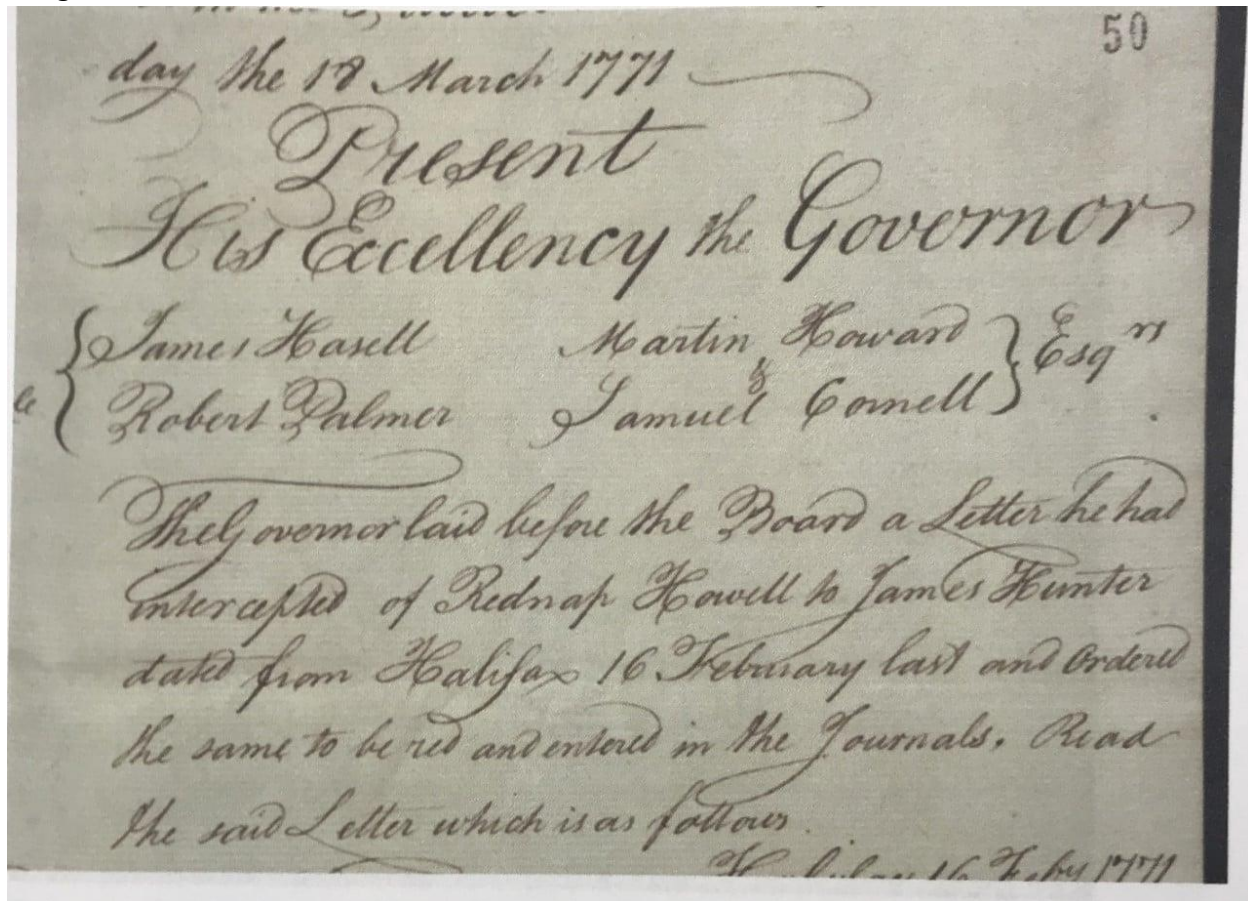 50
day the 18 March 1771
Present
His Eccellency the Governor
James Hasell Martin Howard } Esqrs
Robert Palmer & Samuel Cornell
The Governor laid before the Board a Letter he had
intercepted of Rednap Howell to James Hunter
dated from Halifax 16 Febuary last and Ordered
the same to be red and entered in the Journals. Read
the said Letter which is as follows.
16 Feby 1771